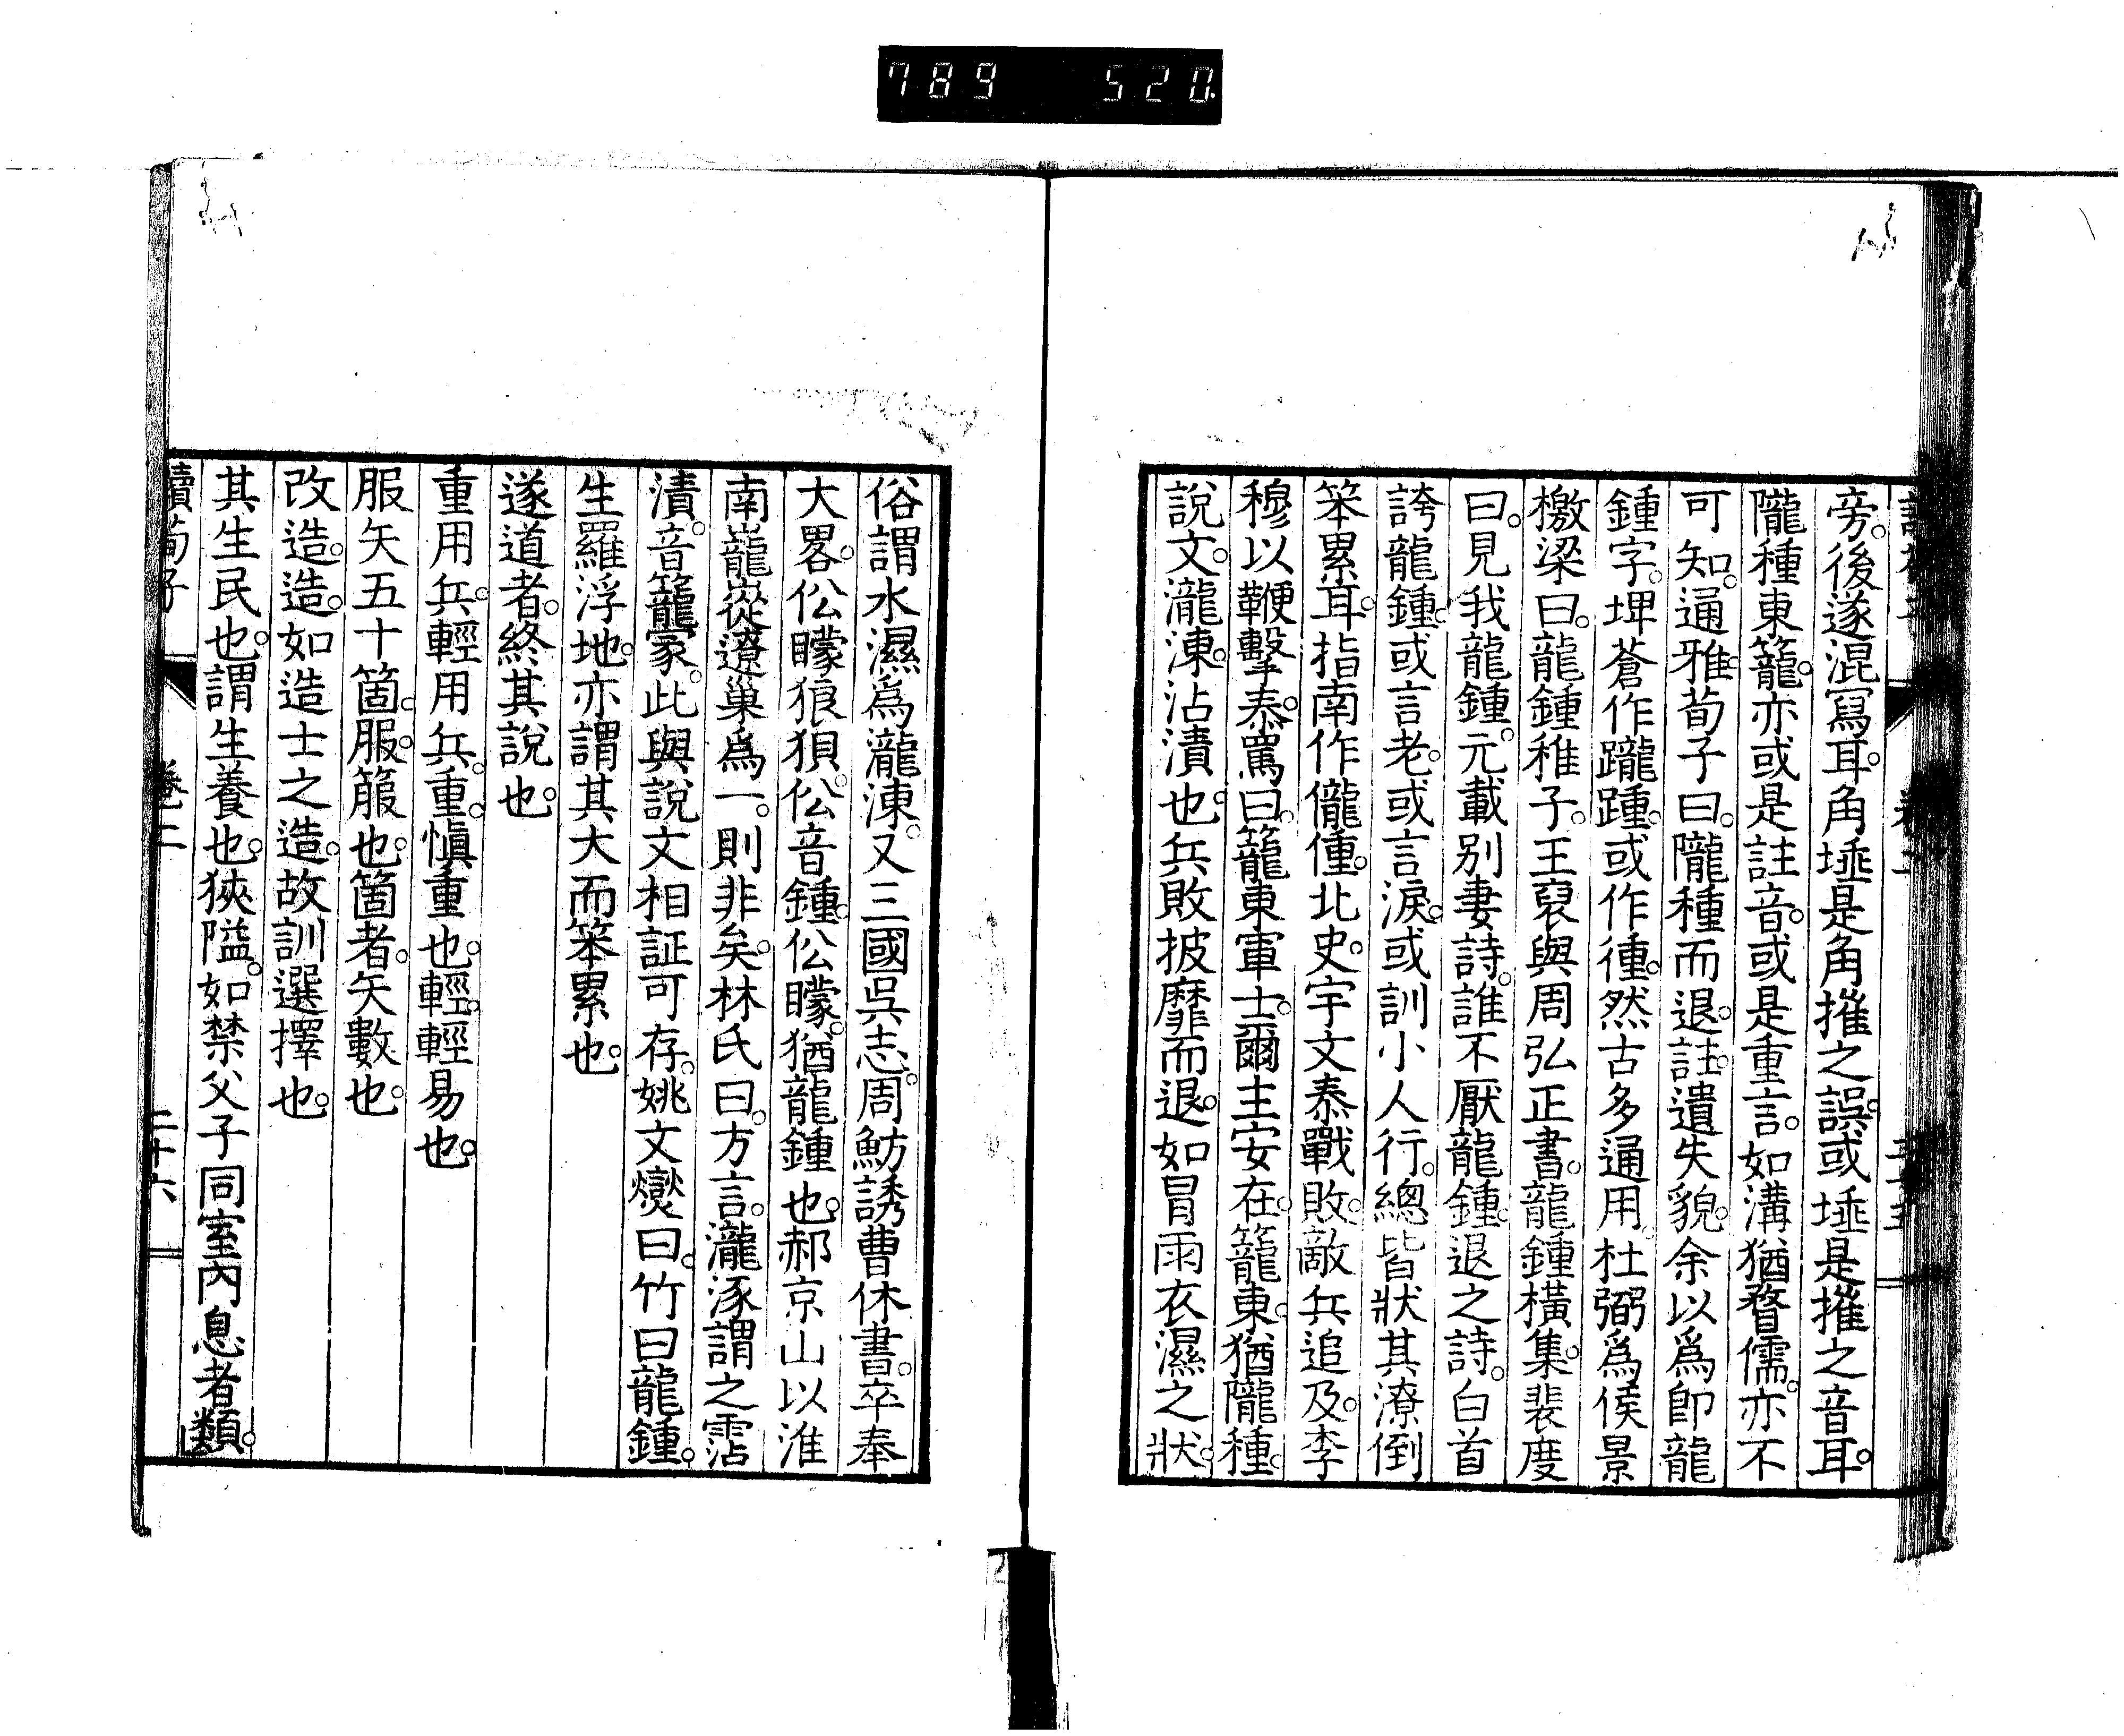 789 520
旁。後遂混寫耳。角埵是角摧之誤。或埵是摧之音耳。
隴種東籠。亦或是註音。或是重言。如溝猶瞀儒。亦不
可知。通雅。荀子曰。隴種而退。註。遺失貌。余以爲卽龍
鍾字。埤蒼作躘踵。或作㣫。然古多通用。杜弼爲侯景
檄梁曰。龍鍾稚子。王裒與周弘正書。龍鍾橫集。裴度
曰。見我龍鍾。元載別妻詩。誰不厭龍鍾。退之詩。白首
誇龍鍾。或言老。或言淚。或訓小人行。總皆狀其潦倒
笨累耳。指南作儱偅。北史。宇文泰戰敗。敵兵追及。李
穆以鞭擊泰。罵曰。籠東軍士。爾主安在。籠東。猶隴種。
說文。瀧涷。沾漬也。兵敗披靡而退。如冒雨衣濕之狀。
俗謂水濕爲瀧涷。又三國吳志。周魴誘曹休書。卒奉
大畧。伀矇狼狽。伀音鍾。伀矇。猶龍鍾也。郝京山以淮
南巃嵸遼巢爲一。則非矣。林氏曰。方言。瀧涿謂之霑
漬。音籠冢。此與說文相証可存。姚文燮曰。竹曰龍鍾。
生羅浮地。亦謂其大而笨累也。
遂道者。終其說也。
重用兵。輕用兵。重。愼重也。輕。輕易也。
服矢五十箇。服。箙也。箇者。矢數也。
改造。造。如造士之造。故訓選擇也。
其生民也。謂生養也。狹隘。如禁父子同室內息者類。
讀荀子 卷二 二十六